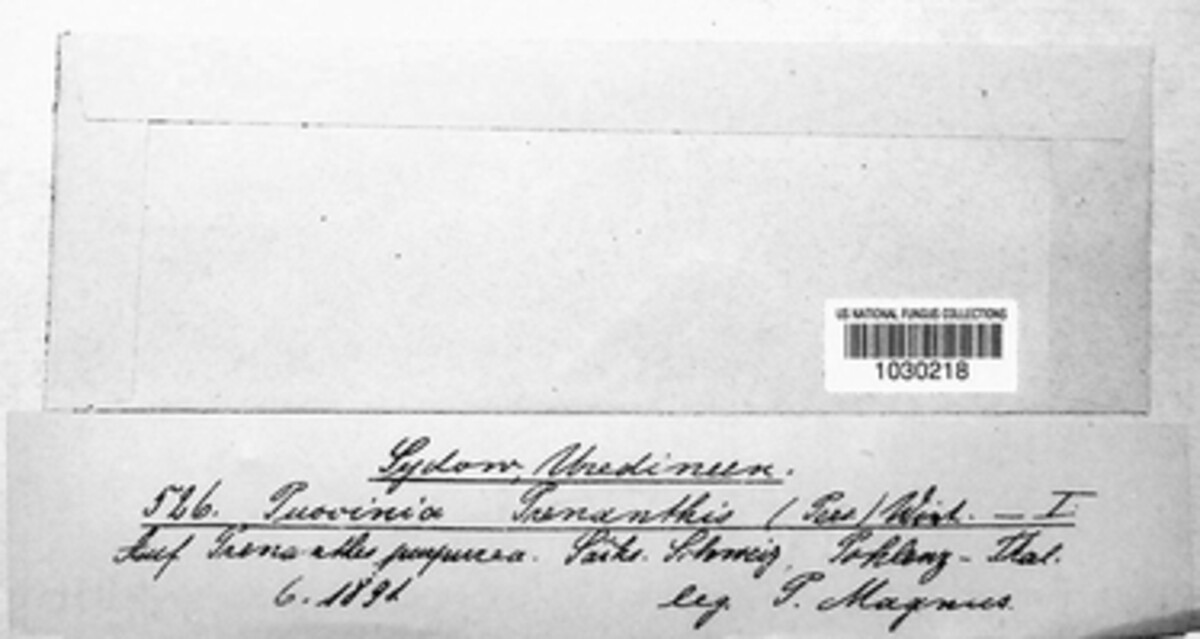 US NATIONAL FUNGUS COLLECTIONS
1030218
Sydow, Uredineen.
526. Puccinia Prenanthis (Pers) Wint. — I
Auf Prenanthes purpurea. Sächs. Schweiz, Pohlenz-Thal.
6. 1891 leg. P. Magnus.